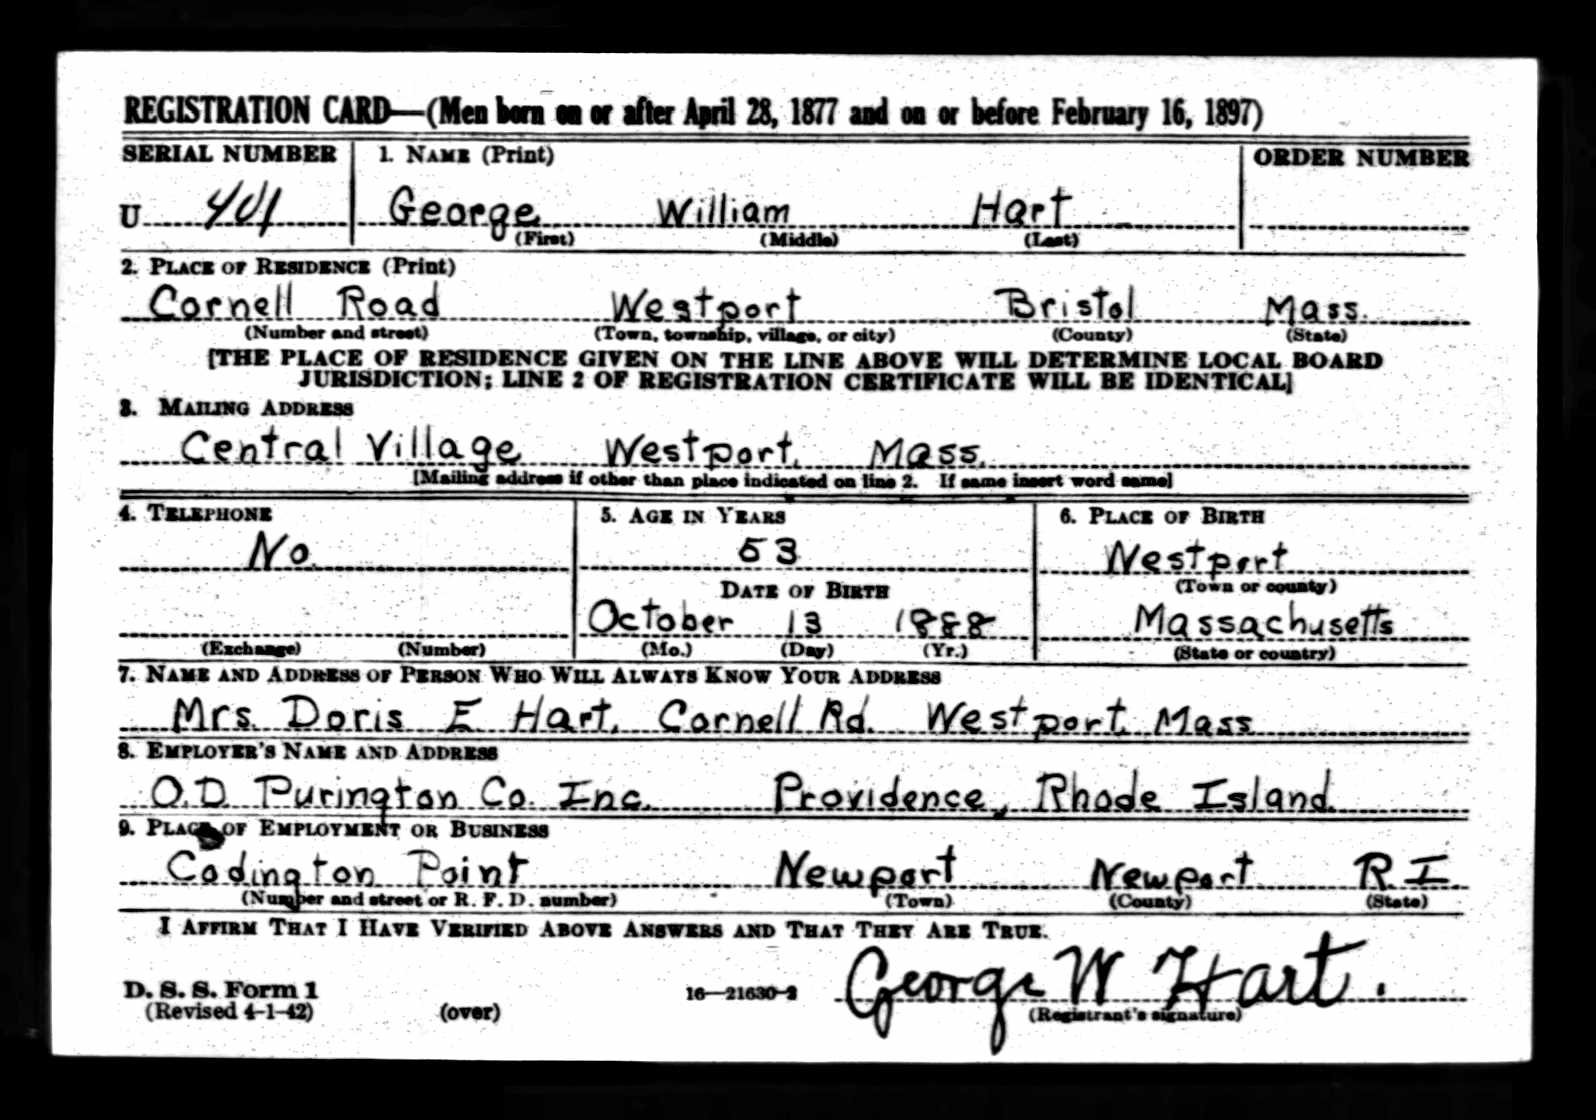 REGISTRATION CARD—(Men born on or after April 28, 1877 and on or before February 16, 1897)
SERIAL NUMBER 1. NAME (Print) ORDER NUMBER
U 401 George William Hart
(First) (Middle) (Last)
2. PLACE OF RESIDENCE (Print)
Cornell Road Westport Bristol Mass.
(Number and street) (Town, township, village, or city) (County) (State)
[THE PLACE OF RESIDENCE GIVEN ON THE LINE ABOVE WILL DETERMINE LOCAL BOARD
JURISDICTION; LINE 2 OF REGISTRATION CERTIFICATE WILL BE IDENTICAL]
3. MAILING ADDRESS
Central Village Westport, Mass.
[Mailing address if other than place indicated on line 2. If same insert word same]
4. TELEPHONE 5. AGE IN YEARS 6. PLACE OF BIRTH
No. 53 Westport
DATE OF BIRTH (Town or county)
October 13 1888 Massachusetts
(Exchange) (Number) (Mo.) (Day) (Yr.) (State or country)
7. NAME AND ADDRESS OF PERSON WHO WILL ALWAYS KNOW YOUR ADDRESS
Mrs. Doris E Hart, Cornell Rd. Westport, Mass
8. EMPLOYER'S NAME AND ADDRESS
O.D. Purington Co. Inc. Providence, Rhode Island.
9. PLACE OF EMPLOYMENT OR BUSINESS
Codington Point Newport Newport R.I.
(Number and street or R. F. D. number) (Town) (County) (State)
I AFFIRM THAT I HAVE VERIFIED ABOVE ANSWERS AND THAT THEY ARE TRUE.
George W Hart.
D. S. S. Form 1 16—21630-2
(Revised 4-1-42) (over) (Registrant's signature)